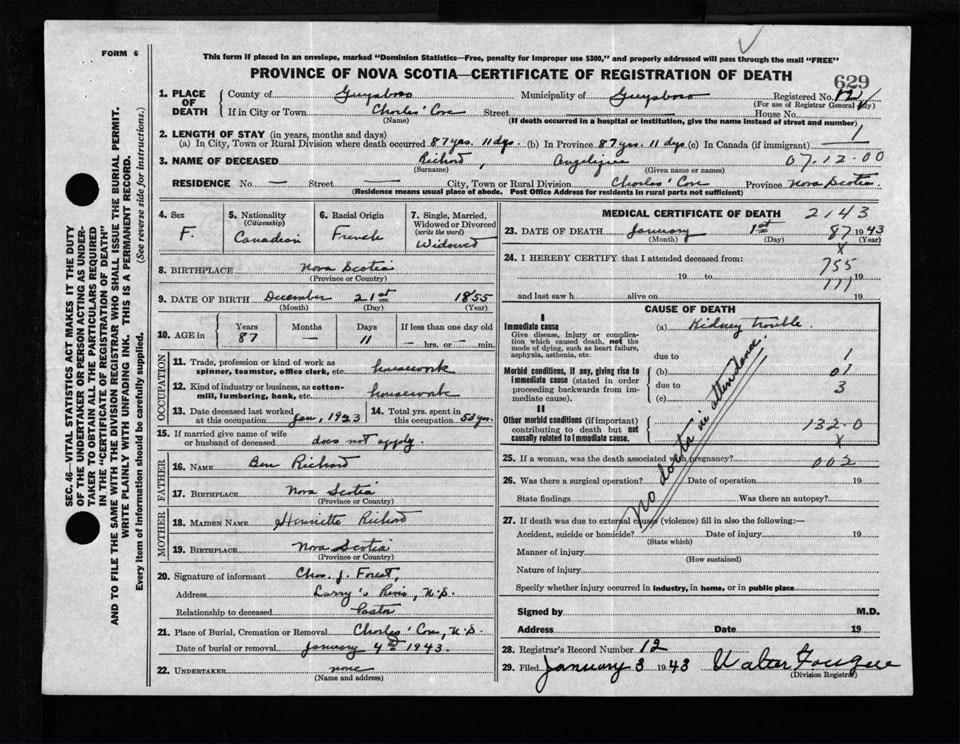 FORM 6
This form if placed in an envelope, marked "Dominion Statistics—Free, penalty for improper use $300," and properly addressed will pass through the mail "FREE"
PROVINCE OF NOVA SCOTIA—CERTIFICATE OF REGISTRATION OF DEATH
629
SEC. 46—VITAL STATISTICS ACT MAKES IT THE DUTY
OF THE UNDERTAKER OR PERSON ACTING AS UNDER-
TAKER TO OBTAIN ALL THE PARTICULARS REQUIRED
IN THE "CERTIFICATE OF REGISTRATION OF DEATH"
AND TO FILE THE SAME WITH THE DIVISION REGISTRAR WHO SHALL ISSUE THE BURIAL PERMIT.
WRITE PLAINLY WITH UNFADING INK. THIS IS A PERMANENT RECORD.
Every item of information should be carefully supplied. (See reverse side for instructions.)
1. PLACE OF DEATH County of Guysboro Municipality of Guysboro Registered No. 12
(For use of Registrar General only)
If in City or Town Charles' Cove Street House No.
(Name) (If death occurred in a hospital or institution, give the name instead of street and number)
2. LENGTH OF STAY (in years, months and days)
(a) In City, Town or Rural Division where death occurred 87 yrs. 11 dys. (b) In Province 87 yrs. 11 dys (c) In Canada (if immigrant) —
1
3. NAME OF DECEASED Richard, Angelique 07.12.00
(Surname) (Given name or names)
RESIDENCE No. — Street — City, Town or Rural Division Charles' Cove Province Nova Scotia.
(Residence means usual place of abode. Post Office Address for residents in rural parts not sufficient)
4. Sex F.
5. Nationality (Citizenship) Canadian
6. Racial Origin French
7. Single, Married, Widowed or Divorced (write the word) Widowed
8. BIRTHPLACE Nova Scotia
(Province or Country)
9. DATE OF BIRTH December 21st 1855
(Month) (Day) (Year)
10. AGE in Years 87 Months — Days 11 If less than one day old — hrs. or — min.
OCCUPATION
11. Trade, profession or kind of work as spinner, teamster, office clerk, etc. housework
12. Kind of industry or business, as cotton-mill, lumbering, bank, etc. housework
13. Date deceased last worked at this occupation Jan, 1923 14. Total yrs. spent in this occupation 53 yrs.
15. If married give name of wife or husband of deceased does not apply.
FATHER
16. NAME Ben Richard
17. BIRTHPLACE Nova Scotia
(Province or Country)
MOTHER
18. MAIDEN NAME Henriette Richard
19. BIRTHPLACE Nova Scotia
(Province or Country)
20. Signature of informant Chas. J. Forest,
Address Larry's River, N.S.
Relationship to deceased Pastor
21. Place of Burial, Cremation or Removal Charles' Cove, N.S.
Date of burial or removal January 4th 1943.
22. UNDERTAKER none
(Name and address)
MEDICAL CERTIFICATE OF DEATH 2143
23. DATE OF DEATH January 1st 87 1943
(Month) (Day) X (Year)
24. I HEREBY CERTIFY that I attended deceased from:
755
19 to 19
111
and last saw h alive on 19
CAUSE OF DEATH
I
Immediate cause
Give disease, injury or complication which caused death, not the mode of dying, such as heart failure, asphyxia, asthenia, etc.
(a) Kidney trouble.
due to 1
Morbid conditions, if any, giving rise to immediate cause (stated in order proceeding backwards from immediate cause).
(b) 01
due to 3
(c)
II
Other morbid conditions (if important) contributing to death but not causally related to immediate cause.
132.0
X
No doctor in attendance.
25. If a woman, was the death associated with pregnancy? 002
26. Was there a surgical operation? Date of operation 19
State findings Was there an autopsy?
27. If death was due to external causes (violence) fill in also the following:—
Accident, suicide or homicide? Date of injury 19
(State which)
Manner of injury
(How sustained)
Nature of injury
Specify whether injury occurred in industry, in home, or in public place
Signed by M.D.
Address Date 19
28. Registrar's Record Number 12
29. Filed January 3 1943 Walter Fougere
(Division Registrar)